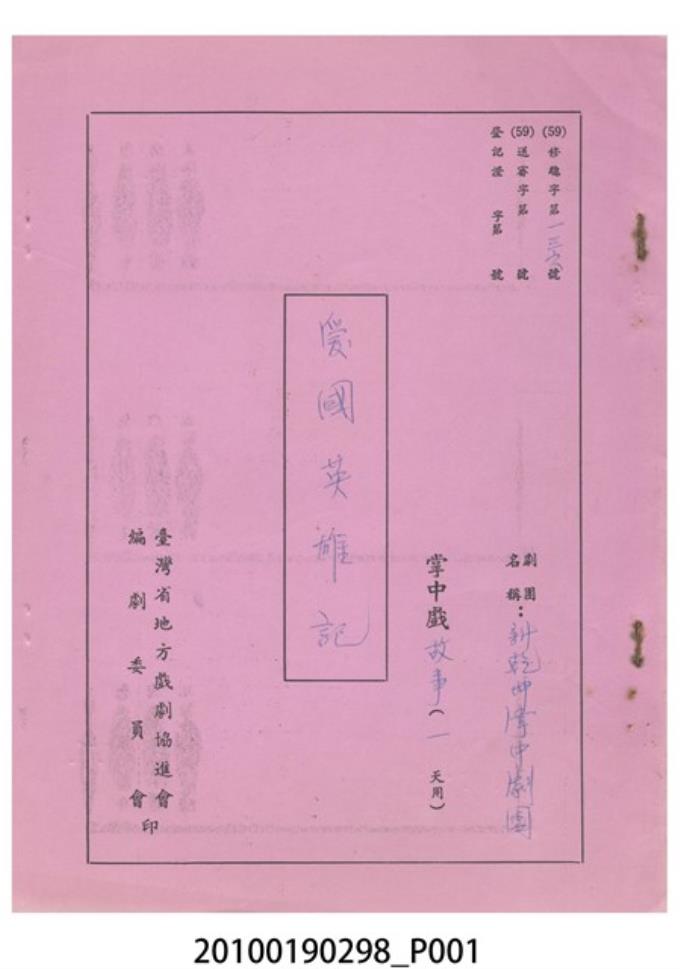 (59)修總字第一三六號
(59)送審字第 號
登記證 字第 號
劇團名稱：新乾坤掌中劇團
掌中戲故事（一天用）
愛國英雄記
臺灣省地方戲劇協進會
編劇委員會印
20100190298_P001